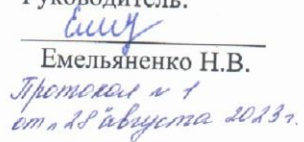 Руководитель:
Емельяненко Н.В.
Протокол № 1
от "28" августа 2023 г.